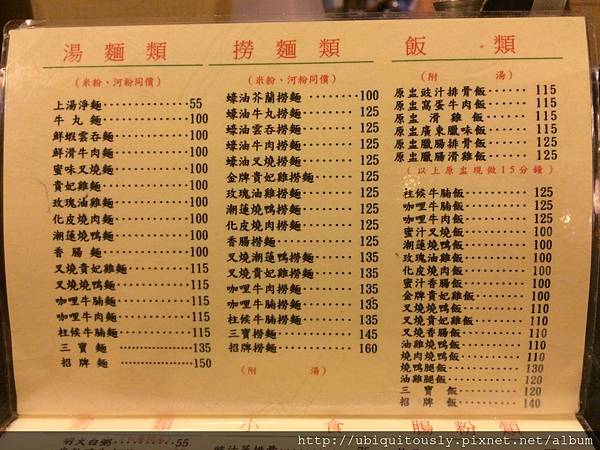 湯麵類
(米粉、河粉同價)
上湯淨麵 55
牛丸麵 100
鮮蝦雲吞麵 100
鮮滑牛肉麵 100
蜜味叉燒麵 100
貴妃雞麵 100
玫瑰油雞麵 100
化皮燒肉麵 100
潮蓮燒鴨麵 100
香腸麵 100
叉燒貴妃雞麵 115
叉燒燒鴨麵 115
咖哩牛腩麵 115
咖哩牛肉麵 115
柱候牛腩麵 115
三寶麵 135
招牌麵 150
撈麵類
(米粉、河粉同價)
蠔油芥蘭撈麵 100
蠔油牛丸撈麵 125
蠔油雲吞撈麵 125
蠔油牛肉撈麵 125
蠔油叉燒撈麵 125
金牌貴妃雞撈麵 125
玫瑰油雞撈麵 125
潮蓮燒鴨撈麵 125
化皮燒肉撈麵 125
香腸撈麵 125
叉燒潮蓮鴨撈麵 135
叉燒貴妃雞撈麵 135
咖哩牛肉撈麵 135
咖哩牛腩撈麵 135
柱候牛腩撈麵 135
三寶撈麵 145
招牌撈麵 160
(附湯)
飯類
(附湯)
原盅豉汁排骨飯 115
原盅窩蛋牛肉飯 115
原盅滑雞飯 115
原盅廣東臘味飯 115
原盅臘腸排骨飯 125
原盅臘腸滑雞飯 125
(以上原盅現做15分鐘)
柱候牛腩飯 125
咖哩牛腩飯 125
咖哩牛肉飯 125
蜜汁叉燒飯 100
潮蓮燒鴨飯 100
玫瑰油雞飯 100
化皮燒肉飯 100
蜜汁香腸飯 100
金牌貴妃雞飯 100
叉燒燒鴨飯 110
叉燒貴妃雞飯 110
叉燒香腸飯 110
油雞燒鴨飯 110
燒肉燒鴨飯 110
燒鴨腿飯 130
油雞腿飯 120
三寶飯 120
招牌飯 140
小食
腸粉類
明火白粥 55
http://ubiquitously.pixnet.net/album